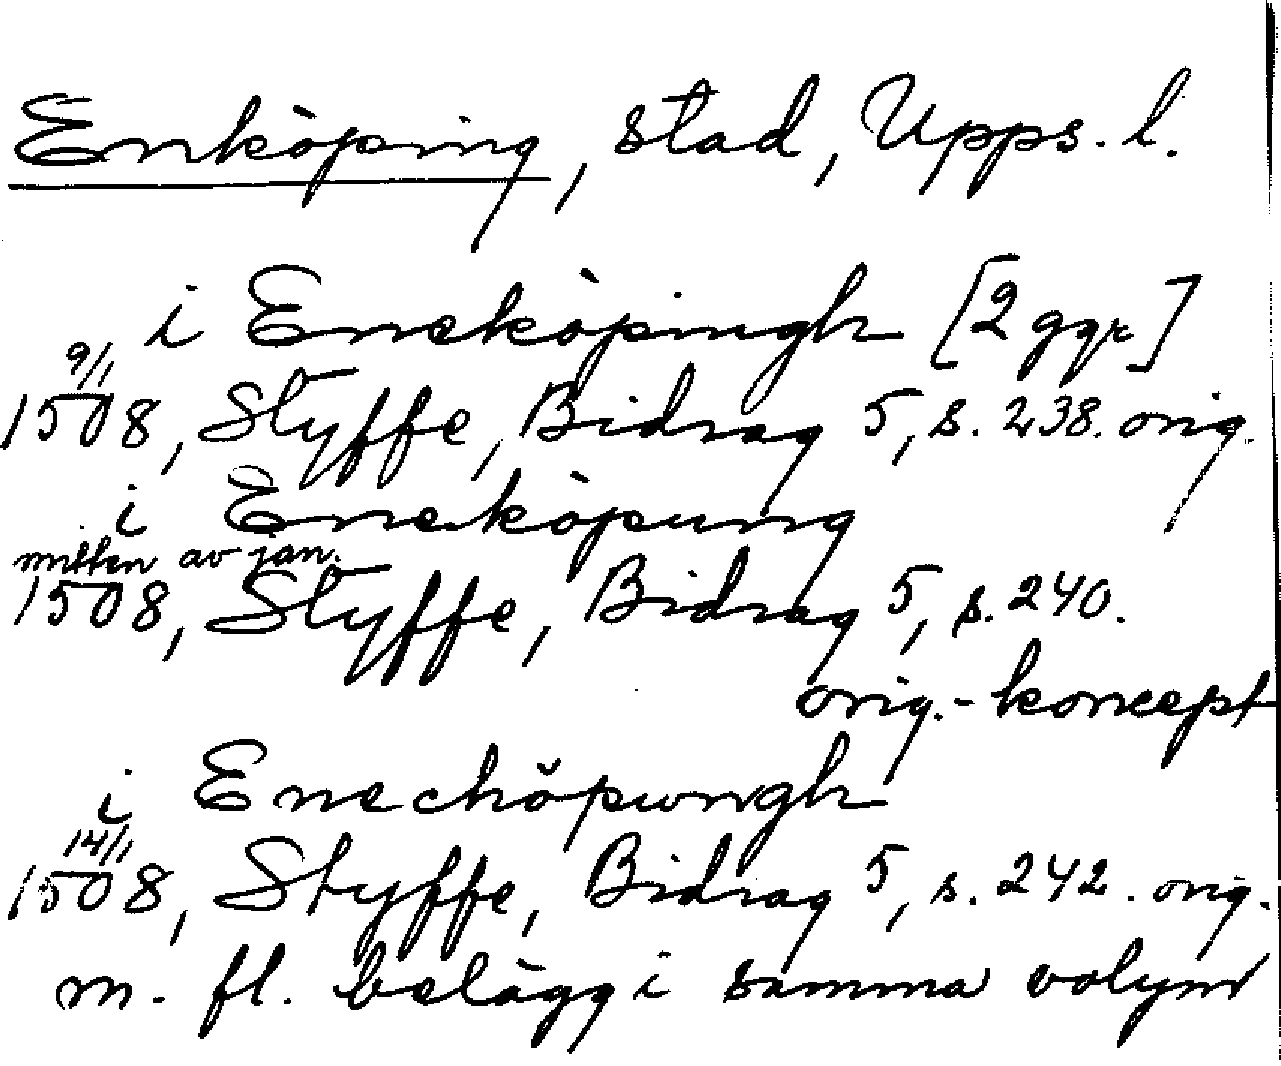 Enköping, stad, Upps. l.
i Eneköpingh [2 ggr]
9/1
1508, Styffe, Bidrag 5, s. 238. orig.
i Eneköpung
mitten av jan.
1508, Styffe, Bidrag 5, s. 240.
orig.-koncept
i Enechöpungh
14/1
1508, Styffe, Bidrag 5, s. 242. orig.
m. fl. belägg i samma volym